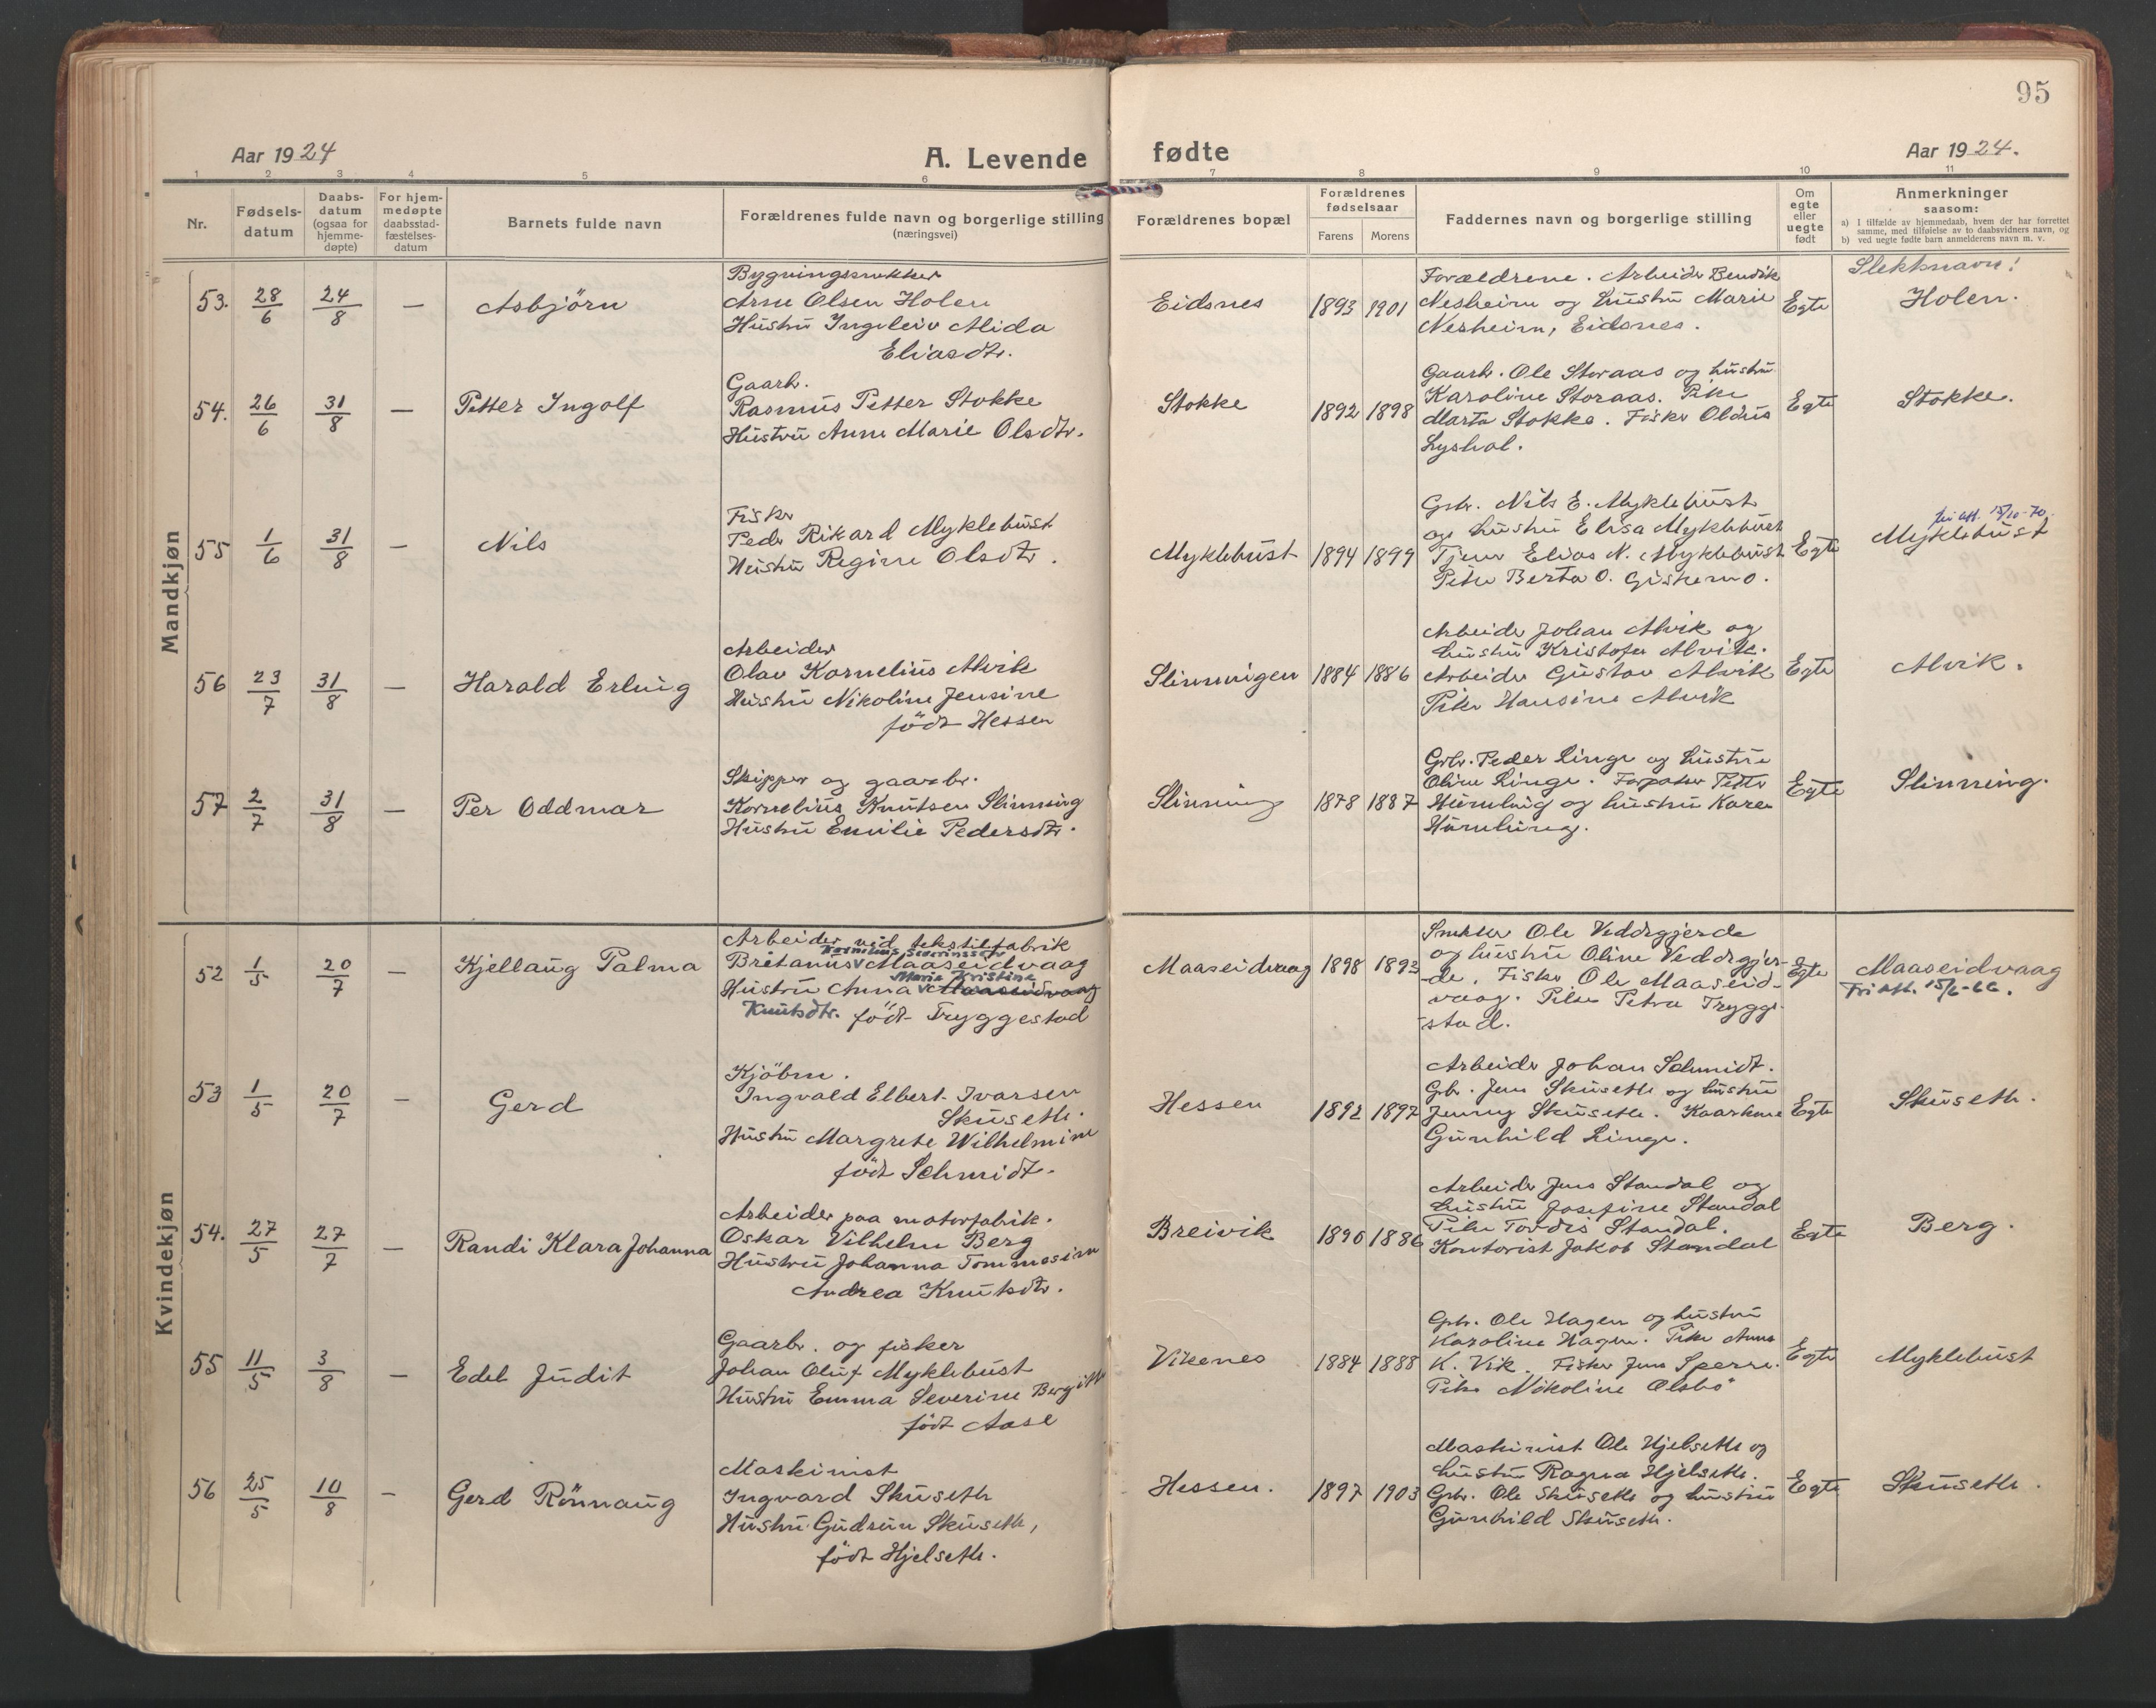 95
Aar 1924
A. Levende
fødte
Aar 1924.
1 2 3 4 5 6 7 8 9 10 11
Nr.
Fødselsdatum
Daabsdatum (ogsaa for hjemmedøpte)
For hjemmedøpte daabsstadfæstelsesdatum
Barnets fulde navn
Forældrenes fulde navn og borgerlige stilling (næringsvei)
Forældrenes bopæl
Forældrenes fødselsaar
Farens
Morens
Faddernes navn og borgerlige stilling
Om egte eller uegte født
Anmerkninger
saasom:
a) I tilfælde av hjemmedaab, hvem der har forrettet samme, med tilføielse av to daabsvidners navn, og
b) ved uegte fødte barn anmelderens navn m. v.
Mandkjøn
53. 28/6 24/8 — Asbjörn
Bygningssnekker
Arne Olsen Holen
Hustru Ingeleiv Alida
Eliasdtr.
Eidsnes 1893 1901
Forældrene. Arbeider Bendik
Nesheim og hustru Marie
Nesheim, Eidsnes.
Egte
Slektsnavn:
Holen.
54. 26/6 31/8 — Petter Ingolf
Gaarb.
Rasmus Petter Stokke
Hustru Anne Marie Olsdtr.
Stokke 1892 1898
Gaarb. Ole Storaas og hustru
Karoline Storaas. Pike
Marta Stokke. Fisker Oldus
Lyshol.
Egte
Stokke.
55 1/6 31/8 — Nils
Fisker
Peder Rikard Myklebust
Hustru Regine Olsdtr.
Myklebust 1894 1899
Grbr. Nils E. Myklebust
og hustru Elisa Myklebust
Tjener Elias N. Myklebust
Pike Berta O. Giskemo.
Egte
fri att. 15/10-70.
Myklebust
56 23/7 31/8 — Harald Erling
Arbeider
Olav Kornelius Alvik
Hustru Nikoline Jensine
födt Hessen
Slinningen 1884 1886
Arbeider Johan Alvik og
hustru Kristofa Alvik.
Arbeider Gustav Alvik
Pike Hansine Alvik
Egte
Alvik.
57 2/7 31/8 — Per Oddmar
Skipper og gaarbr.
Kornelius Knutsen Slinning
Hustru Emilie Pedersdtr.
Slinning 1878 1887
Grbr. Peder Linge og hustru
Oline Linge. Forpakter Petter
Humlung og hustru Karen
Humlung.
Egte
Slinning.
Kvindekjøn
52 1/5 20/7 — Kjellaug Palma
Arbeider ved tekstilfabrik
Kornelius Severinssøn
Britanus Maaseidvaag
Marie Kristine
Hustru Anna Maaseidvaag
Knutsdtr. födt Tryggestad
Maaseidvaag 1898 1893
Snekker Ole Veddegjerde
og hustru Oline Veddegjer-
de. Fisker Ole Maaseid-
vaag. Pike Petra Trygge-
stad.
Egte
Maaseidvaag
Fri att. 15/6-66.
53 1/5 20/7 — Gerd
Kjöbm.
Ingvald Elbert Ivarsen
Skuseth.
Hustru Margrete Wilhelmine
födt Schmidt.
Hessen 1892 1897
Arbeider Johan Schmidt.
Gb. Jens Skuseth og hustru
Jenny Skuseth.
Gunhild Linge.
Egte
Skuseth.
54. 27/5 27/7 — Randi Klara Johanna
Arbeider paa motorfabrik.
Oskar Vilhelm Berg
Hustru Johanna Tommasine
Andrea Knutsdtr.
Breivik 1890 1886
Arbeider Jens Standal og
hustru Josefine Standal
Pike Tordis Standal.
Kontorist Jakob Standal
Egte
Berg.
55 11/5 3/8 — Edel Judit
Gaarbr. og fisker
Johan Oluf Myklebust
Hustru Emma Severine Bergitte
födt Aase
Vikenes 1884 1888
Grbr. Ole Hagen og hustru
Karoline Hagen. Pike Anna
K. Vik. Fisker Jens Sperre.
Pike Nikoline Olsbö
Egte
Myklebust
56 25/5 10/8 — Gerd Rönnaug
Maskinist
Ingvard Skuseth
Hustru Gudrun Skuseth,
födt Hjelseth.
Hessen. 1897 1903
Maskinist Ole Hjelseth og
hustru Ragna Hjelseth.
Grbr. Ole Skuseth og hustru
Gunhild Skuseth.
Egte
Skuseth.